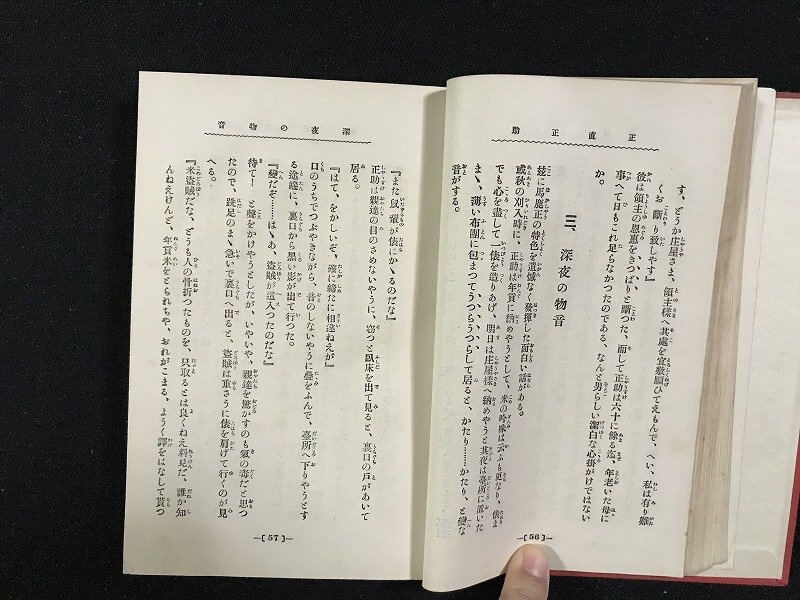 正直正助
す、どうか庄屋さま、領主様へ其處を宜敷願ひてえもんで、へい、私は有り難
くお斷り致しやす』
彼は領主の恩惠をきつぱりと斷つた、而して正助は六十に餘る迄、年老いた母に
事へて日もこれ足らなかつたのである、なんと男らしい潔白な心掛けではない
か。
三、深夜の物音
玆に馬鹿正の特色を遺憾なく發揮した面白い話がある。
或秋の刈入時に、正助は年貢に納めやうとして、米の吟味は云ふも更なり、俵ま
でも心を盡して一俵を造りあげ、明日は庄屋樣へ納めやうと其夜は臺所に置いた
まゝ、薄い布團に包まつてうつらうつらして居ると、かたり……かたり、と變な
音がする。
―〔56〕―
深夜の物音
『また鼠輩が俵にかゝるのだな』
正助は親達の目のさめないやうに、窃つと臥床を出て見ると、裏口の戸があいて
居る。
『はて、をかしいぞ、慥に締た相違ねえが』
口のうちでつぶやきながら、音のしないやうに疊をふんで、臺所へ下りやうとす
る途端に、裏口から黒い影が出て行つた。
『變だぞ……はゝあ、盜賊が這入つたのだな』
待てーと聲をかけやうとしたが、いやいや、親達を驚かすのも氣の毒だと思つ
たので、跣足のまゝ急いで裏口へ出ると、盜賊は重さうに俵を肩げて行くのが見
へる。
『米盜賊だな、どうも人の骨折つたものを、只取るとは良くねえ料見だ、誰か知
んねえけんど、年貢米をとられちや、おれがこまる、ようく譯をはなして貰つ
―〔57〕―